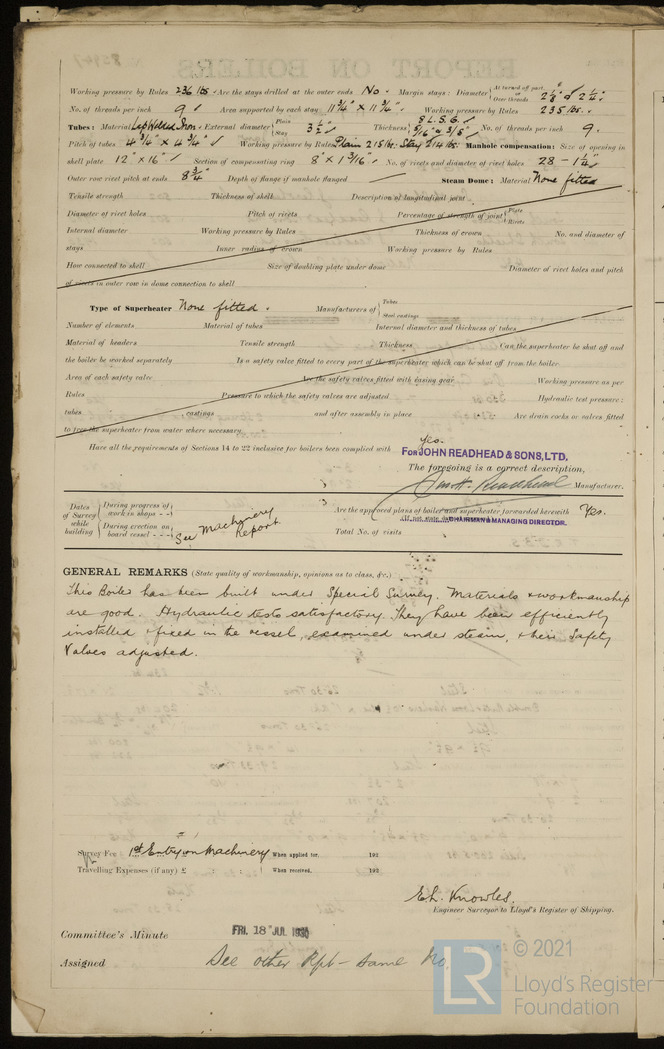 Working pressure by Rules 236 lbs. Are the stays drilled at the outer ends No. Margin stays: Diameter { At turned off part, or Over threads 2 1/8" & 2 1/4"
No. of threads per inch 9. Area supported by each stay 11 3/4" × 11 3/4". Working pressure by Rules 235 lbs.
Tubes: Material Lap Welded Iron. External diameter { Plain Stay 3 1/2" Thickness { 8 L.S.G. 5/16" & 3/8" No. of threads per inch 9.
Pitch of tubes 4 3/4" × 4 3/4" Working pressure by Rules Plain 215 lb: Stay 214 lbs: Manhole compensation: Size of opening in
shell plate 12" × 16" Section of compensating ring 8" × 1 3/16" No. of rivets and diameter of rivet holes 28 - 1 1/4"
Outer row rivet pitch at ends 8 3/4" Depth of flange if manhole flanged Steam Dome: Material None fitted
Tensile strength Thickness of shell Description of longitudinal joint
Diameter of rivet holes Pitch of rivets Percentage of strength of joint { Plate Rivets
Internal diameter Working pressure by Rules Thickness of crown No. and diameter of
stays Inner radius of crown Working pressure by Rules
How connected to shell Size of doubling plate under dome Diameter of rivet holes and pitch
of rivets in outer row in dome connection to shell
Type of Superheater None fitted. Manufacturers of { Tubes Steel castings
Number of elements Material of tubes Internal diameter and thickness of tubes
Material of headers Tensile strength Thickness Can the superheater be shut off and
the boiler be worked separately Is a safety valve fitted to every part of the superheater which can be shut off from the boiler
Area of each safety valve Are the safety valves fitted with easing gear Working pressure as per
Rules Pressure to which the safety valves are adjusted Hydraulic test pressure:
tubes castings and after assembly in place Are drain cocks or valves fitted
to free the superheater from water where necessary
Have all the requirements of Sections 14 to 22 inclusive for boilers been complied with Yes.
FOR JOHN READHEAD & SONS, LTD.
The foregoing is a correct description,
Jas. H. Readhead Manufacturer.
CHAIRMAN & MANAGING DIRECTOR.
Dates of Survey while building { During progress of work in shops - - During erection on board vessel - - - } See Machinery Report
Are the approved plans of boiler and superheater forwarded herewith Yes.
Total No. of visits
GENERAL REMARKS (State quality of workmanship, opinions as to class, &c.)
This Boiler has been built under Special Survey. Materials & workmanship
are good. Hydraulic tests satisfactory. They have been efficiently
installed & fixed in the vessel, examined under steam, & their Safety
Valves adjusted.
Survey Fee 1st Entry on Machinery When applied for, 192
Travelling Expenses (if any) £ : : When received, 192
E.L. Knowles.
Engineer Surveyor to Lloyd's Register of Shipping.
Committee's Minute FRI. 18 JUL 1930
Assigned See other Rpt - same No.
LR © 2021
Lloyd's Register
Foundation